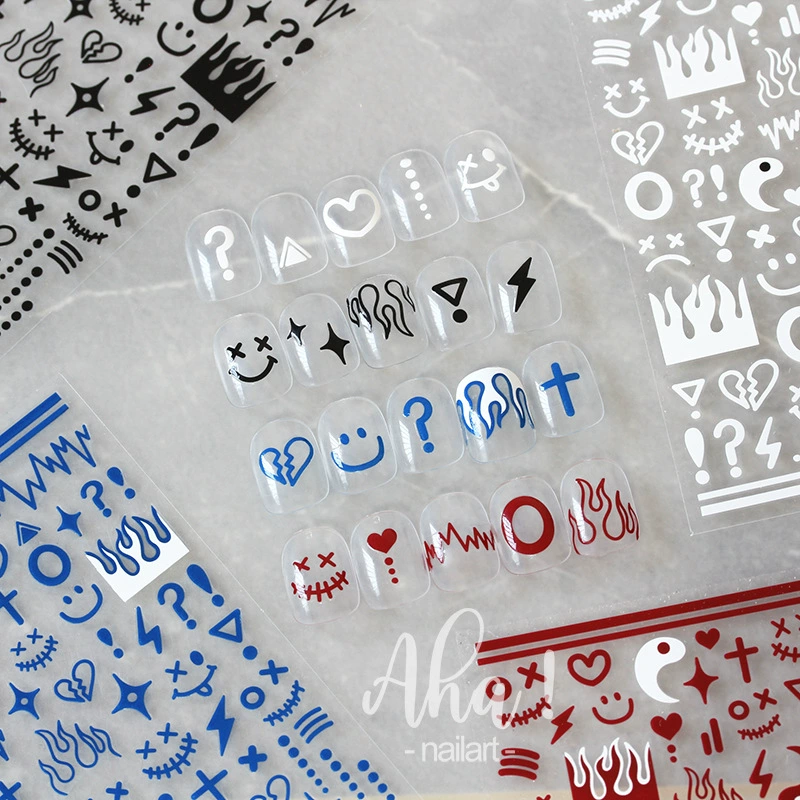 ?
?
Aha!
- nailart -